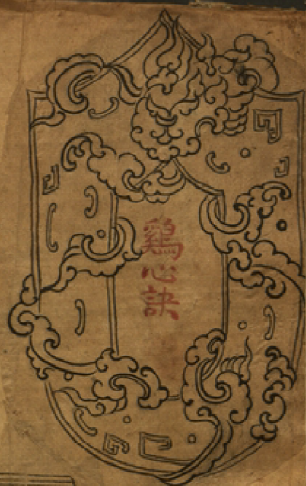 鷄心訣